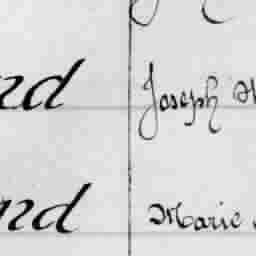 nd Joseph
nd Marie